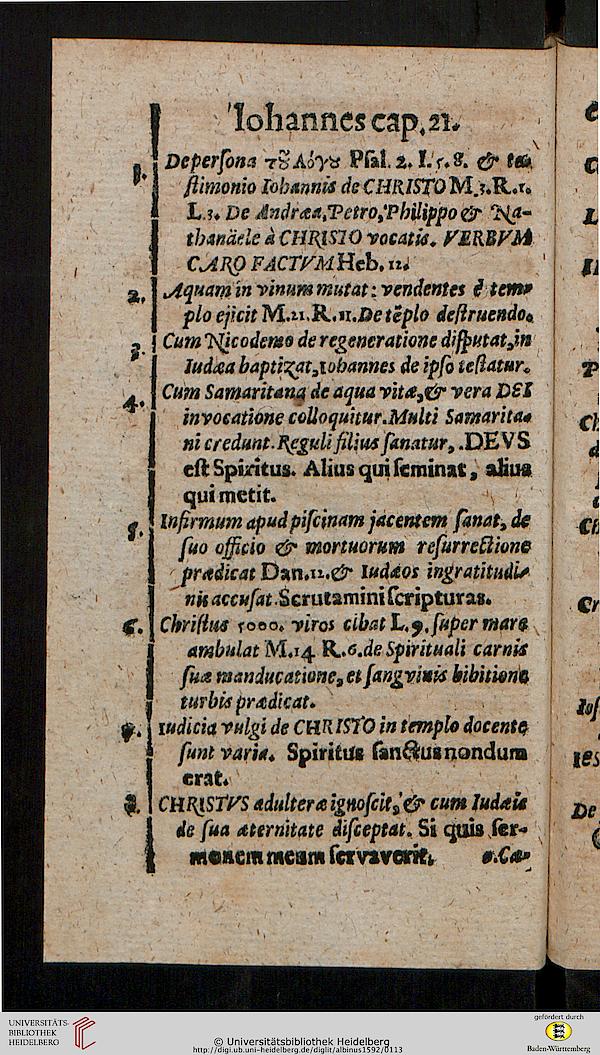 Iohannes cap. 21.
1. De persona τȣ͂ Λόγȣ Psal. 2. I. 5. 8. & te-
stimonio Iohannis de CHRISTO M. 3. R. 1.
L. 3. De Andræa, Petro, Philippo & Na-
thanäele à CHRISTO vocatis. VERBVM
CARO FACTVM Heb. 12.
2. Aquam in vinum mutat: vendentes è tem-
plo ejicit M. 21. R. 11. De tẽplo destruendo.
3. Cum Nicodemo de regeneratione disputat, in
Iudæa baptizat, Iohannes de ipso testatur.
4. Cum Samaritana de aqua vitæ, & vera DEI
invocatione colloquitur. Multi Samarita-
ni credunt. Reguli filius sanatur, . DEVS
est Spiritus. Alius qui seminat, alius
qui metit.
5. Infirmum apud piscinam jacentem sanat, de
suo officio & mortuorum resurrectione
prædicat Dan. 12. & Iudæos ingratitudi-
nis accusat. Scrutamini scripturas.
6. Christus 5000. viros cibat L. 9. super mare
ambulat M. 14 R. 6. de Spirituali carnis
suæ manducatione, et sangvinis bibitione
turbis prædicat.
7. Iudicia vulgi de CHRISTO in templo docente
sunt varia. Spiritus sanctus nondum
erat.
8. CHRISTVS adulteræ ignoscit, & cum Iudæis
de sua æternitate disceptat. Si quis ser-
monem meum servaverit,
9. Cæ-
UNIVERSITÄTS-
BIBLIOTHEK
HEIDELBERG
© Universitätsbibliothek Heidelberg
http://digi.ub.uni-heidelberg.de/diglit/albinus1592/0113
gefördert durch
Baden-Württemberg